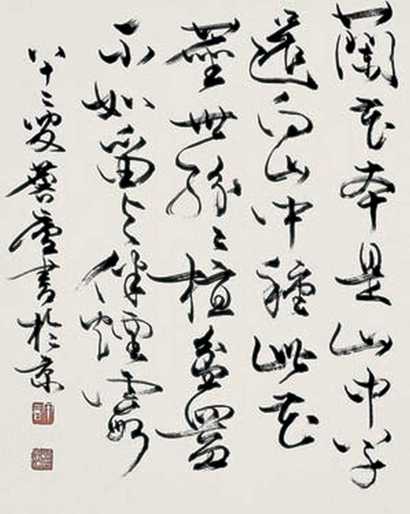 蘭花本是山中草
還向山中種此花
塵世紛々植盆盎
不如留與伴煙霞
八十二叟書於京